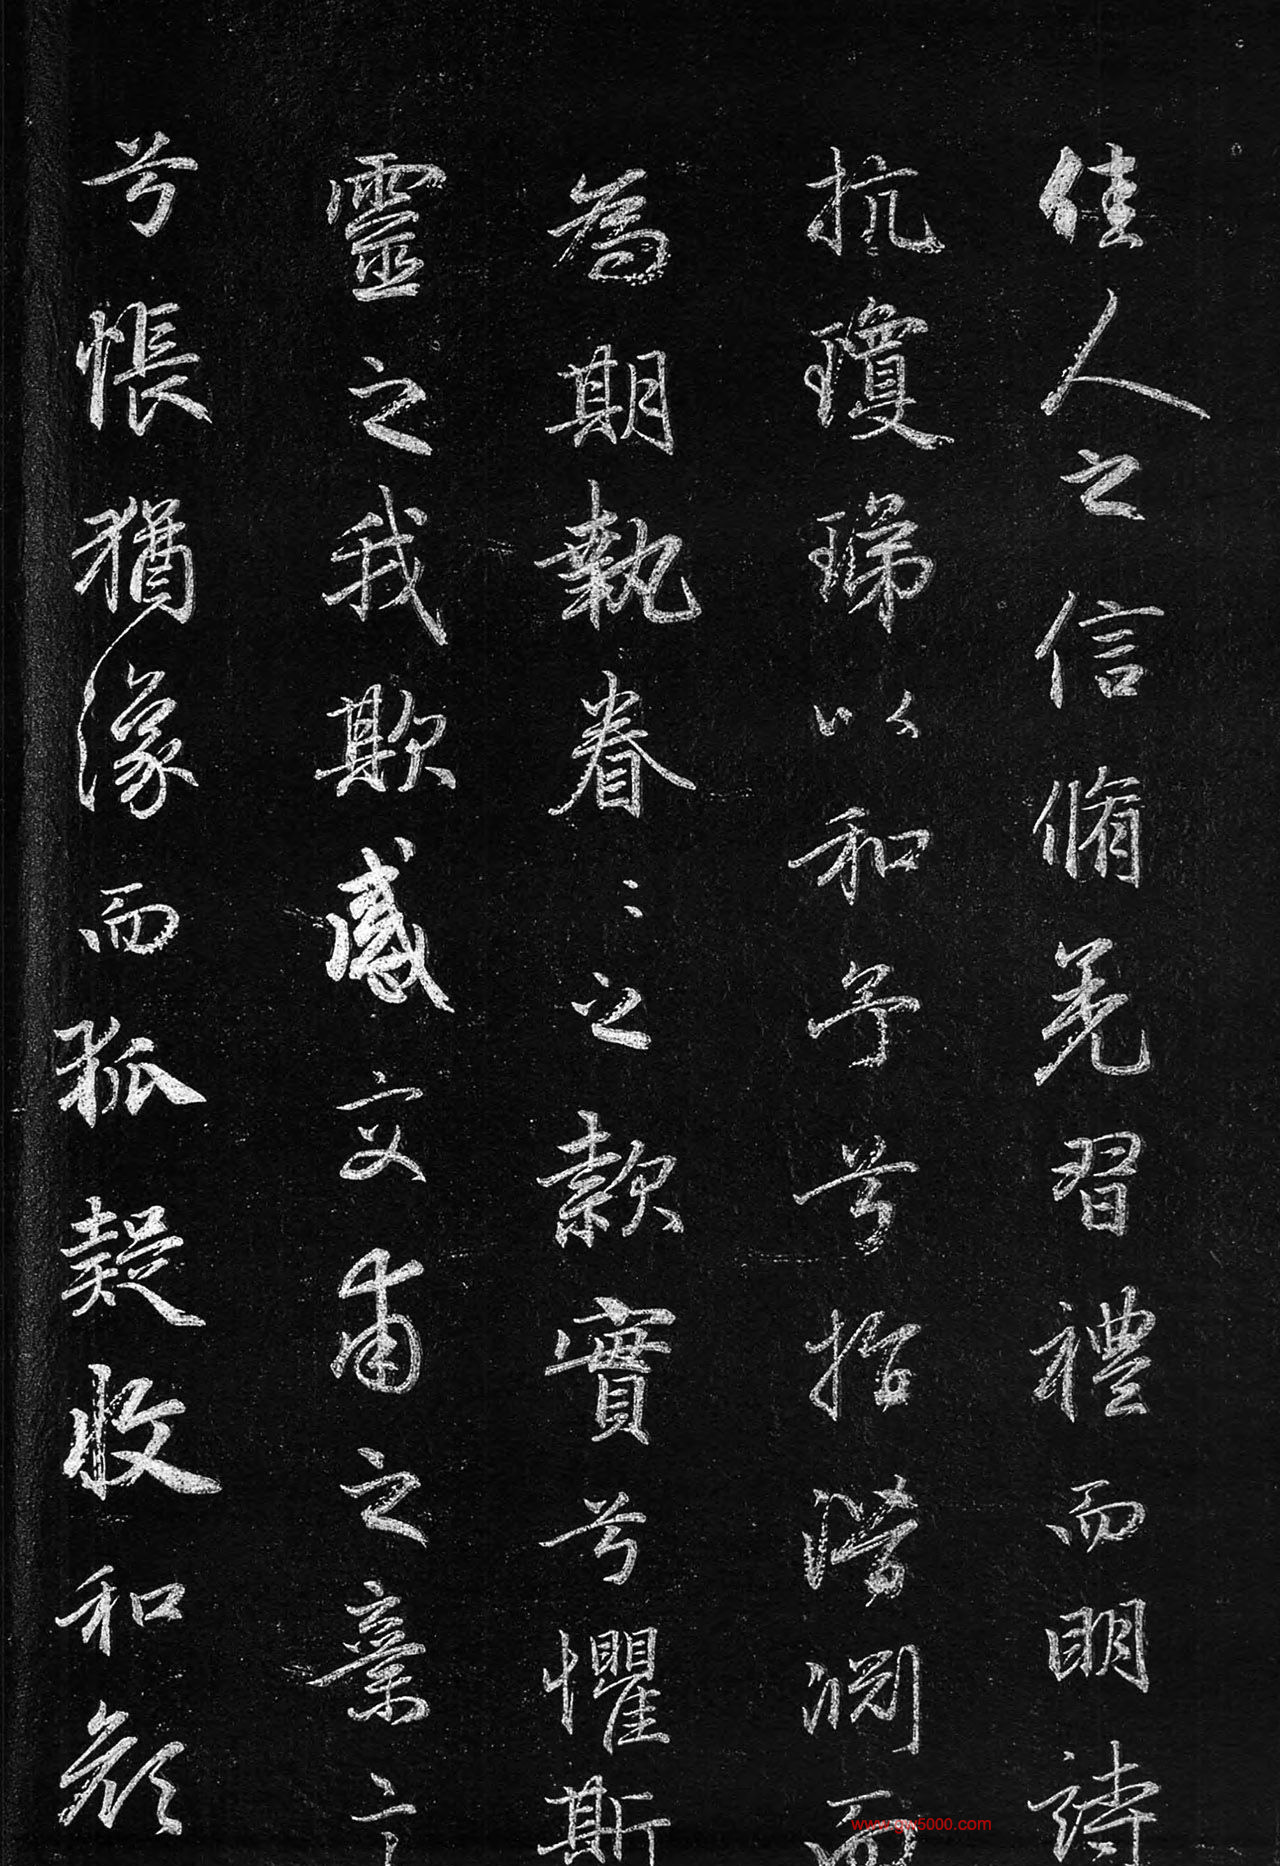 佳人之信脩羌習禮而明詩
抗瓊珶以和予兮指潛淵而
為期執眷〻之款實兮懼斯
靈之我欺感交甫之棄言
兮悵猶豫而狐疑收和顏
www.gw5000.com